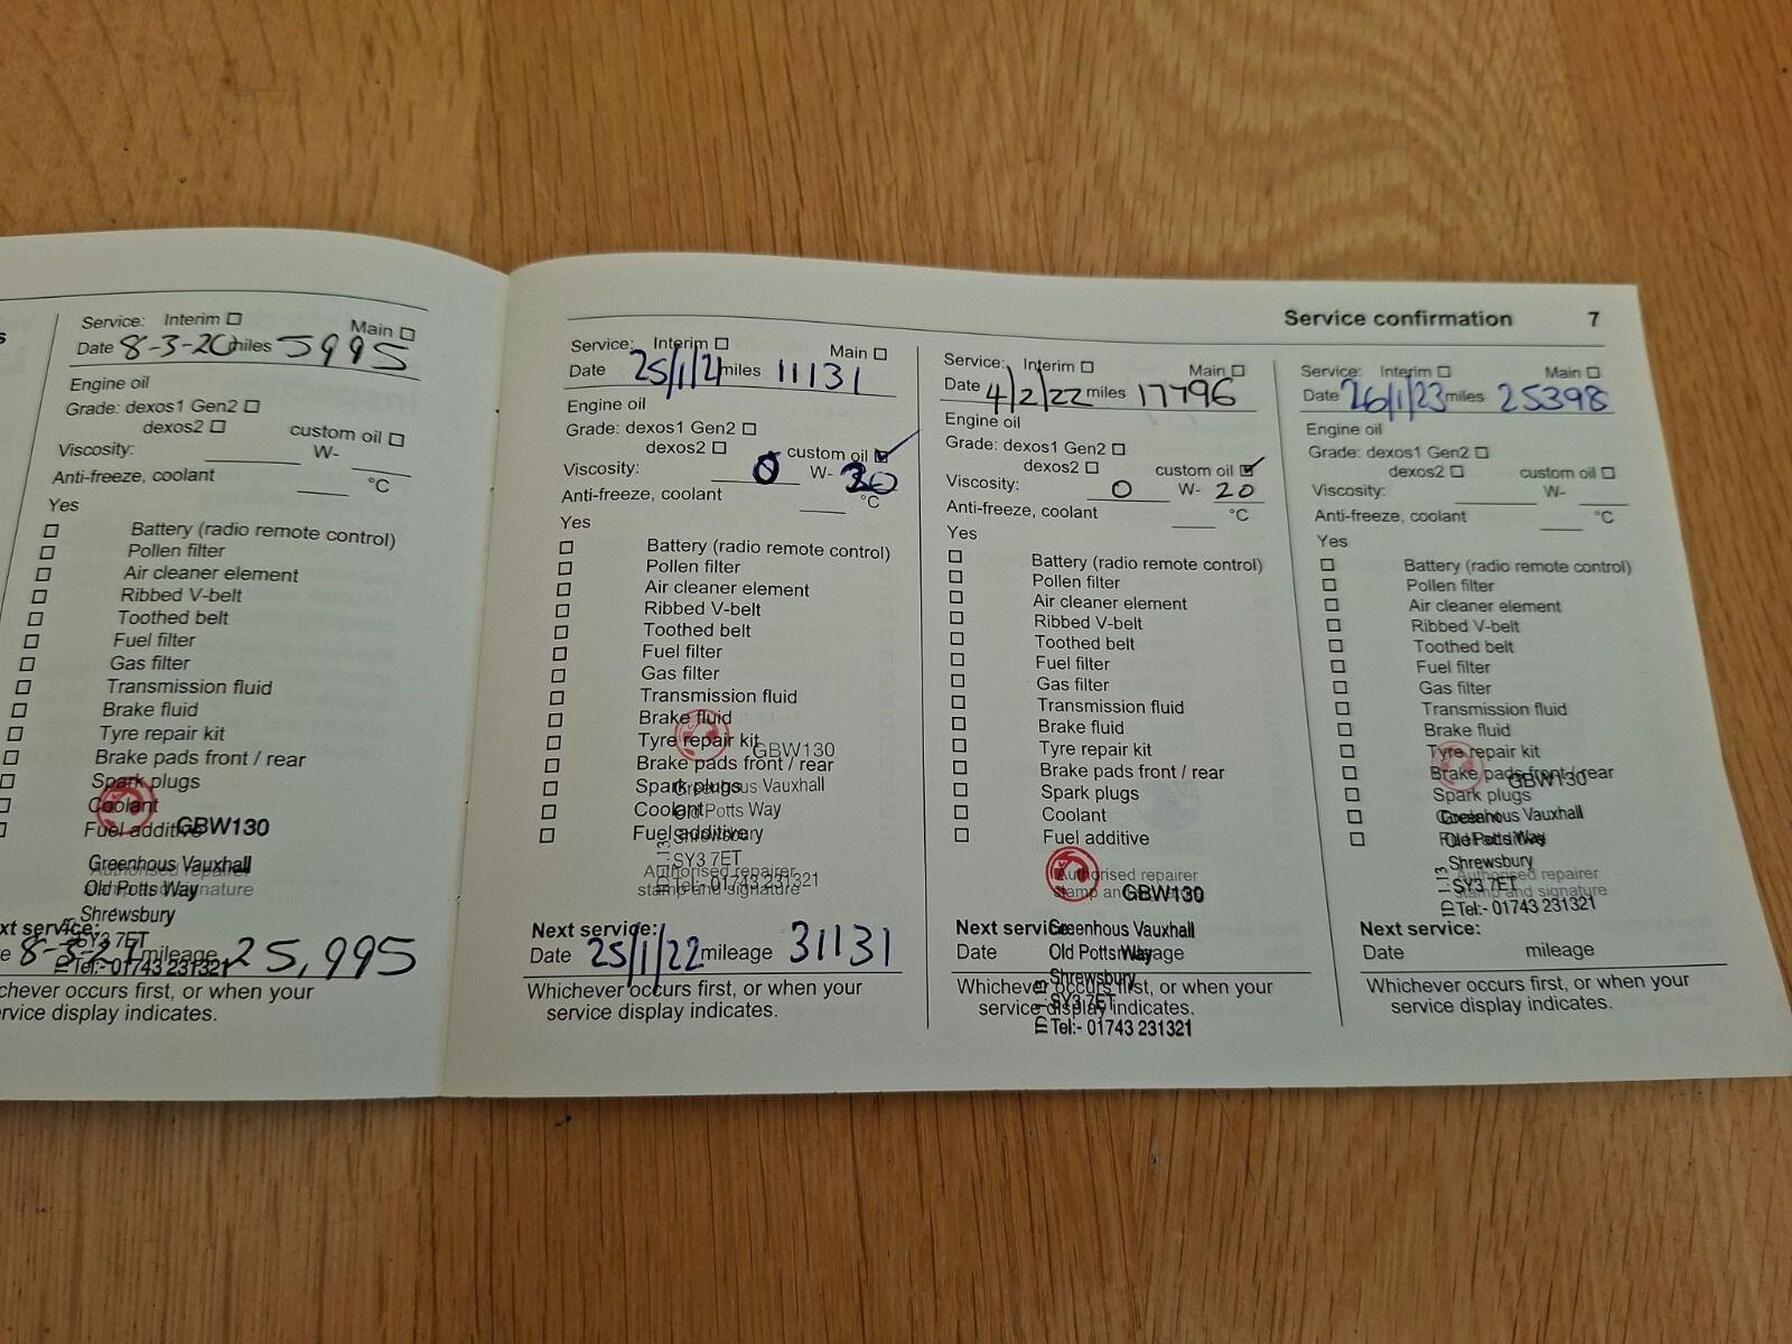 s
Service: Interim ☐ Main ☐
Date 8-3-20 miles 5995
Engine oil
Grade: dexos1 Gen2 ☐
dexos2 ☐ custom oil ☐
Viscosity: W-
Anti-freeze, coolant °C
Yes
☐ Battery (radio remote control)
☐ Pollen filter
☐ Air cleaner element
☐ Ribbed V-belt
☐ Toothed belt
☐ Fuel filter
☐ Gas filter
☐ Transmission fluid
☐ Brake fluid
☐ Tyre repair kit
☐ Brake pads front / rear
☐ Spark plugs
☐ Coolant
☐ Fuel additive
GBW130
Greenhous Vauxhall
Authorised repairer
Old Potts Way
stamp and signature
Shrewsbury
xt service:
SY3 7ET
e 8-3-21 mileage 25,995
Tel:- 01743 231321
chever occurs first, or when your
rvice display indicates.
Service confirmation 7
Service: Interim ☐ Main ☐
Date 25/1/21 miles 11131
Engine oil
Grade: dexos1 Gen2 ☐
dexos2 ☐ custom oil ☑
Viscosity: 0 W- 20
Anti-freeze, coolant °C
Yes
☐ Battery (radio remote control)
☐ Pollen filter
☐ Air cleaner element
☐ Ribbed V-belt
☐ Toothed belt
☐ Fuel filter
☐ Gas filter
☐ Transmission fluid
☐ Brake fluid
☐ Tyre repair kit
GBW130
☐ Brake pads front / rear
☐ Spark plugs
Greenhous Vauxhall
☐ Coolant
Old Potts Way
☐ Fuel additive
Shrewsbury
SY3 7ET
Authorised repairer
Tel:- 01743 231321
stamp and signature
Next service:
Date 25/1/22 mileage 31131
Whichever occurs first, or when your
service display indicates.
Service: Interim ☐ Main ☐
Date 4/2/22 miles 17796
Engine oil
Grade: dexos1 Gen2 ☐
dexos2 ☐ custom oil ☑
Viscosity: 0 W- 20
Anti-freeze, coolant °C
Yes
☐ Battery (radio remote control)
☐ Pollen filter
☐ Air cleaner element
☐ Ribbed V-belt
☐ Toothed belt
☐ Fuel filter
☐ Gas filter
☐ Transmission fluid
☐ Brake fluid
☐ Tyre repair kit
☐ Brake pads front / rear
☐ Spark plugs
☐ Coolant
☐ Fuel additive
Authorised repairer
stamp and signature
GBW130
Next service:
Greenhous Vauxhall
Date mileage
Old Potts Way
Shrewsbury
Whichever occurs first, or when your
SY3 7ET
service display indicates.
Tel:- 01743 231321
Service: Interim ☐ Main ☐
Date 26/1/23 miles 25398
Engine oil
Grade: dexos1 Gen2 ☐
dexos2 ☐ custom oil ☐
Viscosity: W-
Anti-freeze, coolant °C
Yes
☐ Battery (radio remote control)
☐ Pollen filter
☐ Air cleaner element
☐ Ribbed V-belt
☐ Toothed belt
☐ Fuel filter
☐ Gas filter
☐ Transmission fluid
☐ Brake fluid
☐ Tyre repair kit
☐ Brake pads front / rear
GBW130
☐ Spark plugs
☐ Coolant
Greenhous Vauxhall
☐ Fuel additive
Old Potts Way
Shrewsbury
Authorised repairer
SY3 7ET
stamp and signature
Tel:- 01743 231321
Next service:
Date mileage
Whichever occurs first, or when your
service display indicates.